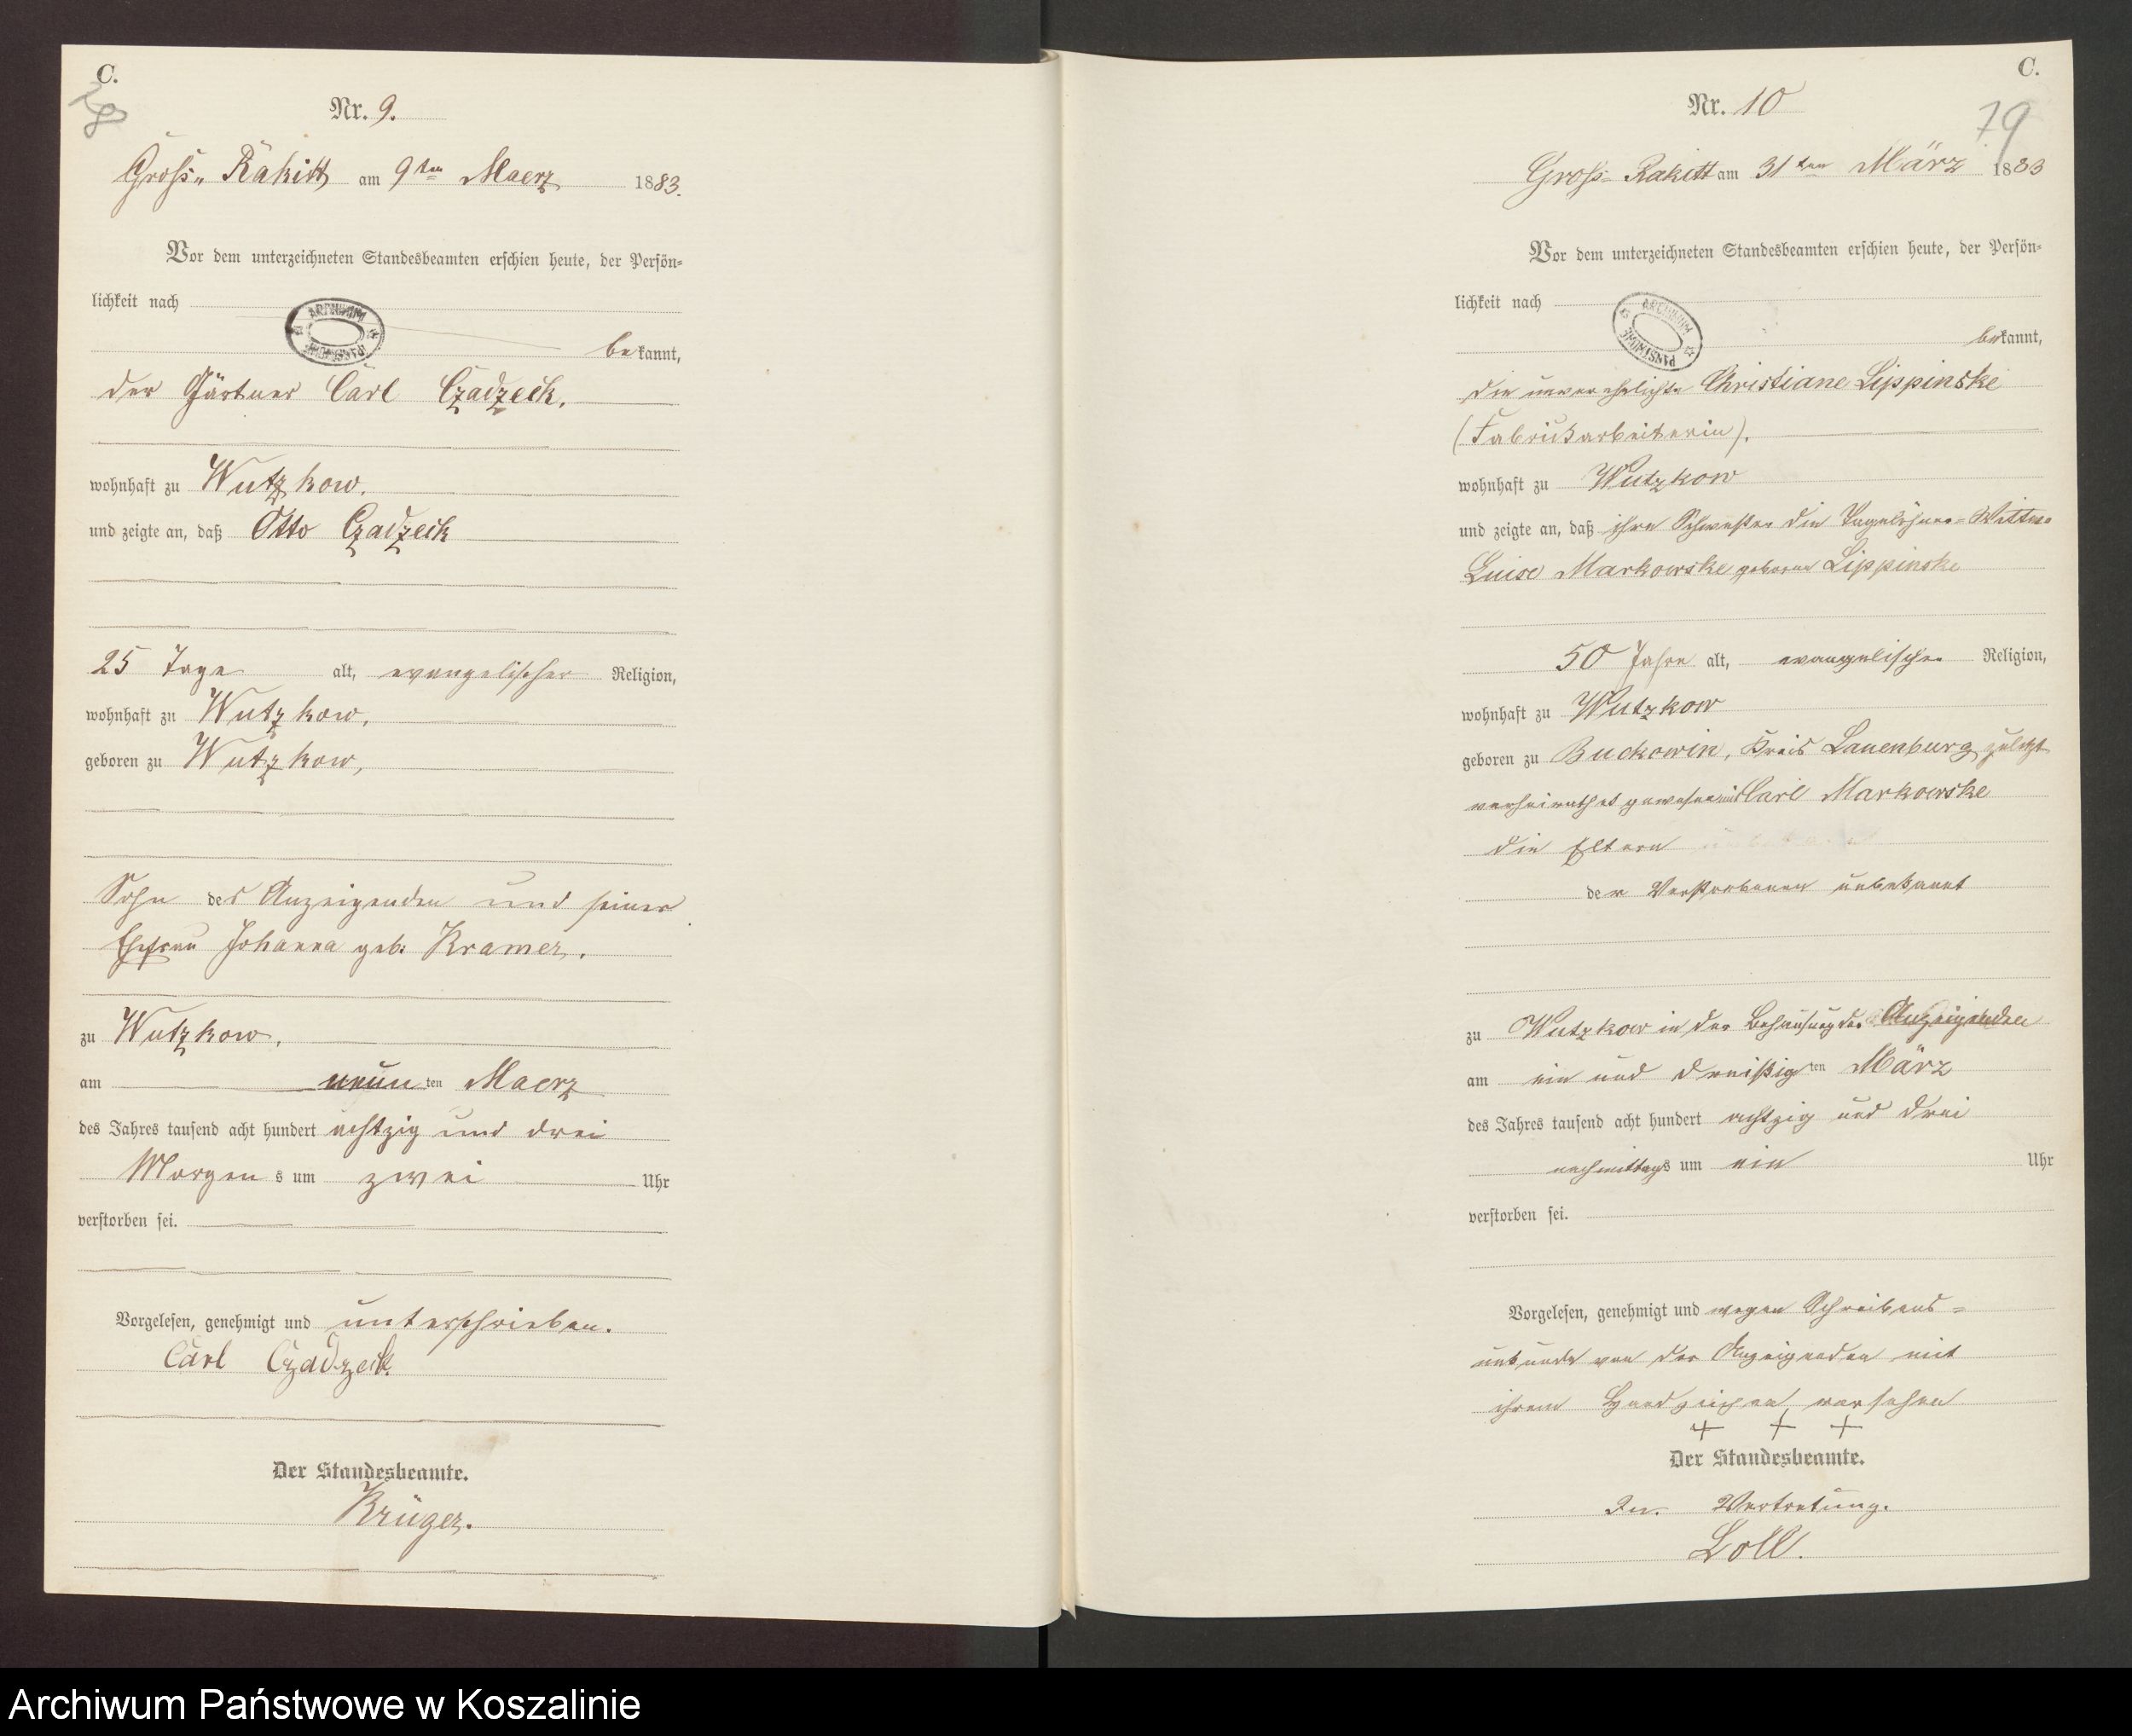 C.
Nr. 9.
Gross- Rakitt am 9ten Maerz 1883.
Vor dem unterzeichneten Standesbeamten erschien heute, der Persön-
lichkeit nach
ARCHIWUM PAŃSTWOWE
bekannt,
der Gärtner Carl Czadzeck.
wohnhaft zu Wutzkow.
und zeigte an, daß Otto Czadzeck
25 Tage alt, evangelischer Religion,
wohnhaft zu Wutzkow,
geboren zu Wutzkow,
Sohn des Anzeigenden und seiner
Ehefrau Johanna geb. Kramer.
zu Wutzkow.
am neunten Maerz
des Jahres tausend acht hundert achtzig und drei
Morgens um zwei Uhr
verstorben sei.
Vorgelesen, genehmigt und unterschrieben.
Carl Czadzeck
Der Standesbeamte.
Krüger.
C.
79
Nr. 10
Gross- Rakitt am 31ten März 1883
Vor dem unterzeichneten Standesbeamten erschien heute, der Persön-
lichkeit nach
ARCHIWUM PAŃSTWOWE
bekannt,
die unverehelichte Christiane Lippinske
(Fabrikarbeiterin).
wohnhaft zu Wutzkow
und zeigte an, daß ihre Schwester die Tagelöhner-Wittwe
Luise Markowske geborene Lippinske
50 Jahre alt, evangelischer Religion,
wohnhaft zu Wutzkow
geboren zu Buckowin, Kreis Lauenburg, zuletzt
verheirathet gewesen mit Carl Markowske
die Eltern
der Verstorbenen unbekannt
zu Wutzkow in der Behausung der Anzeigenden
am ein und dreißigten März
des Jahres tausend acht hundert achtzig und drei
nachmittags um ein Uhr
verstorben sei.
Vorgelesen, genehmigt und wegen Schreibens-
unkunde von der Anzeigenden mit
ihrem Handzeichen versehen
+ + +
Der Standesbeamte.
In Vertretung.
Loll.
Archiwum Państwowe w Koszalinie